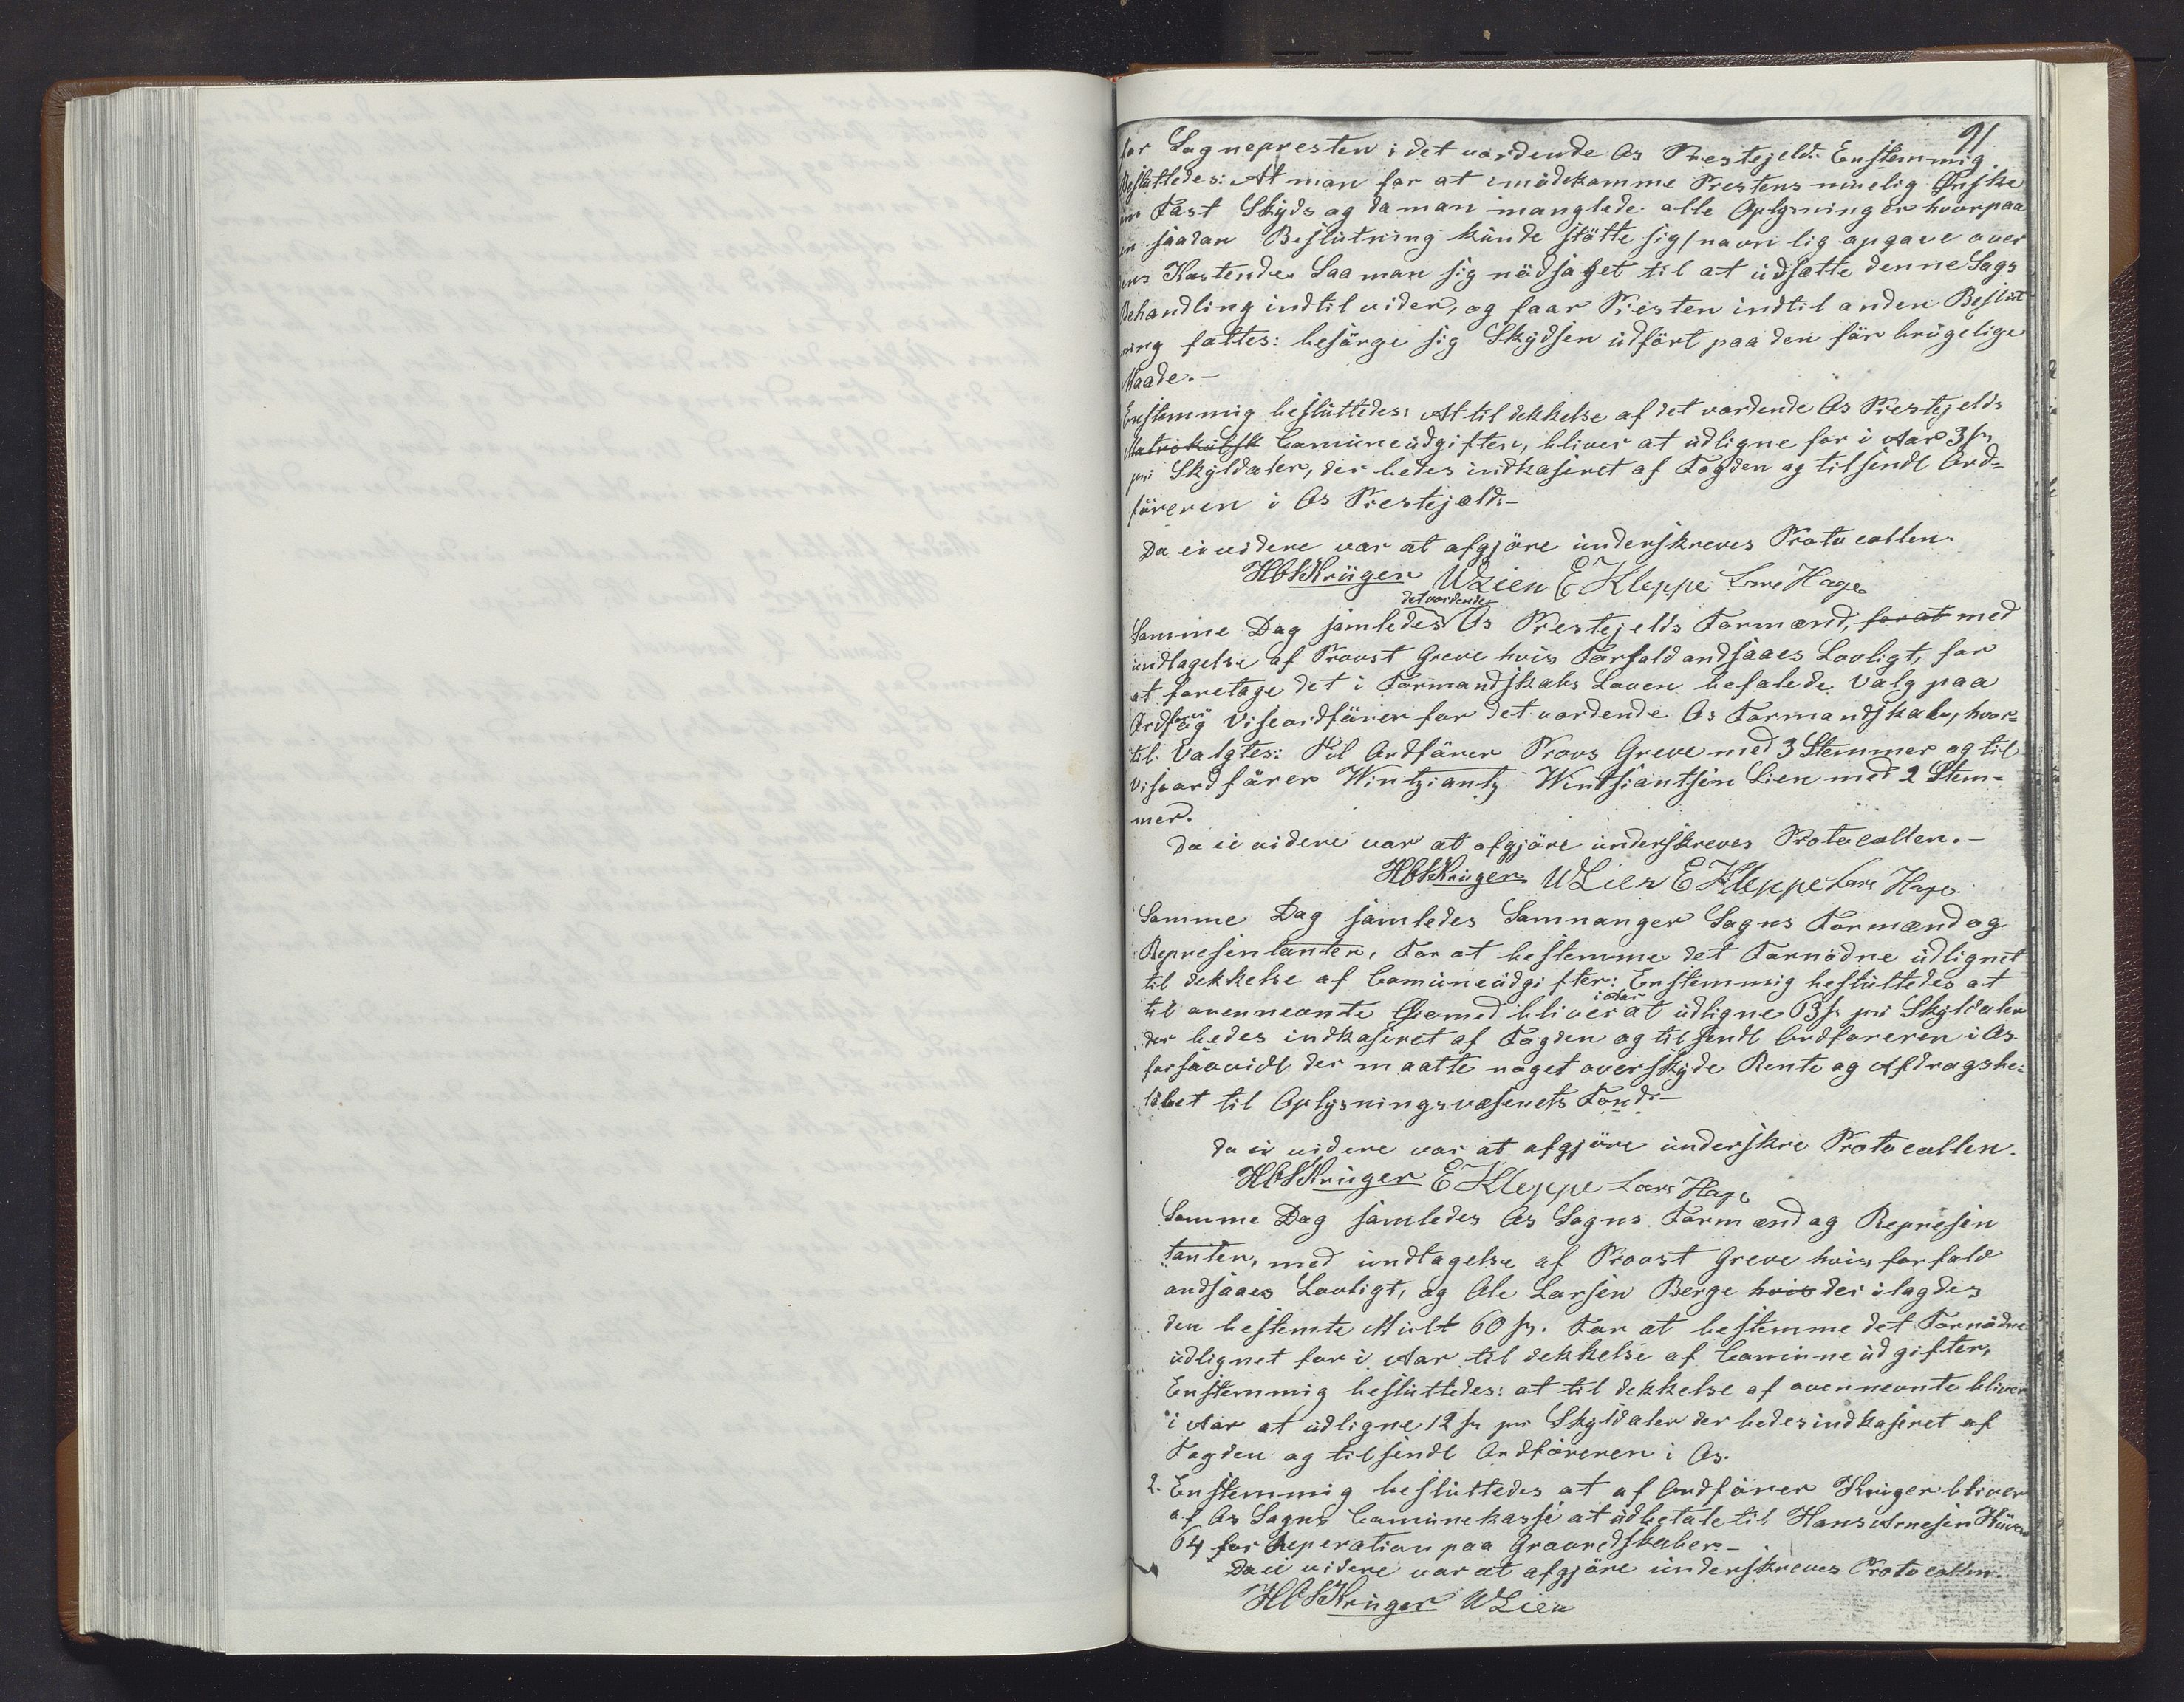 91
for Sognepresten i det vordende Os Prestejeld. Enstemmig
Besluttedes: At man for at imødekomme Prestens Ønske
om Fast Skyds og da man manglede alle Oplysninger hvorpaa
en saadan Beslutning kunde støtte sig, navnlig opgave over
ens Kostende. Saa man sig nødsaget til at udsætte denne Sags
Behandling indtil vider, og faar Presten indtil anden Beslut
ning fattes: besørge sig Skydsen udført paa den før brugelige
Maade.-
Enstemmig besluttedes: At til dekkelse af det vordende Os Prestejelds
Matrikulsk Comuneudgifter, bliver at udligne for i Aar 3 s
pr Skyldaler, der bedes indkaseret af Fogden og tilsendt Ord-
føreren i Os Prestejeld.-
Da ei videre var at afgjøre underskreves Protocollen.
HCSKrüger WLien E Kleppe Lars Hage
det vordende
Samme Dag samledes Os Prestejelds Formænd, for at med
undtagelse af Provst Greve hvis Forfald andsaaes Lovligt, for
at foretage det i Formandskabs Loven befalede Valg paa
Ordfører og Viseordfører for det vordende Os Formandskab, hvor-
til Valgtes: Til Ordfører Provs Greve med 3 Stemmer og til
Viseordfører Wintziantz Wintsiantsen Lien med 2 Stem-
mer.
Da ei videre var at afgjøre underskreves Protocollen.-
HCSKrüger WLien E Kleppe Lars Hage
Samme Dag samledes Samnanger Sogns Formænd og
Representanter, For at bestemme det Fornødne udlignet
til dekkelse af Comuneudgifter: Enstemmig besluttedes at
i Aar
til ovennevnte Øiemed bliver at udligne 13 s pr Skyldaler
der bedes indkaseret af Fogden og tilsendt Ordføreren i Os
forsaavidt der maatte noget overskyde Rente og Afdragsbe-
løbet til Oplysningsvæsenets Fond.-
da ei videre var at afgjøre underskre Protocollen.
HCSKrüger E Kleppe Lars Hage
Samme Dag samledes Os Sogns Formænd og Represen
tanter, med undtagelse af Provst Greve hvis forfald
andsaaes Lovligt, og Ole Larsen Berge hvis der ilagdes
den bestemte Mult 60 s. For at bestemme det Fornødne
udlignet for i Aar til dekkelse af Comuneudgifter,
Enstemmig besluttedes: at til dekkelse af ovennevnte bliver
i Aar at udligne 12 s pr Skyldaler der bedes indkaseret af
Fogden og tilsendt Ordføreren i Os.
2. Enstemmig besluttedes at af Ordfører Krüger bliver
af Os Sogns Comunekasse at udbetale til Hans Arnesen
64 for Reperation paa
Da ei videre var at afgjøre underskreves Protocollen.
HCSKrüger WLien